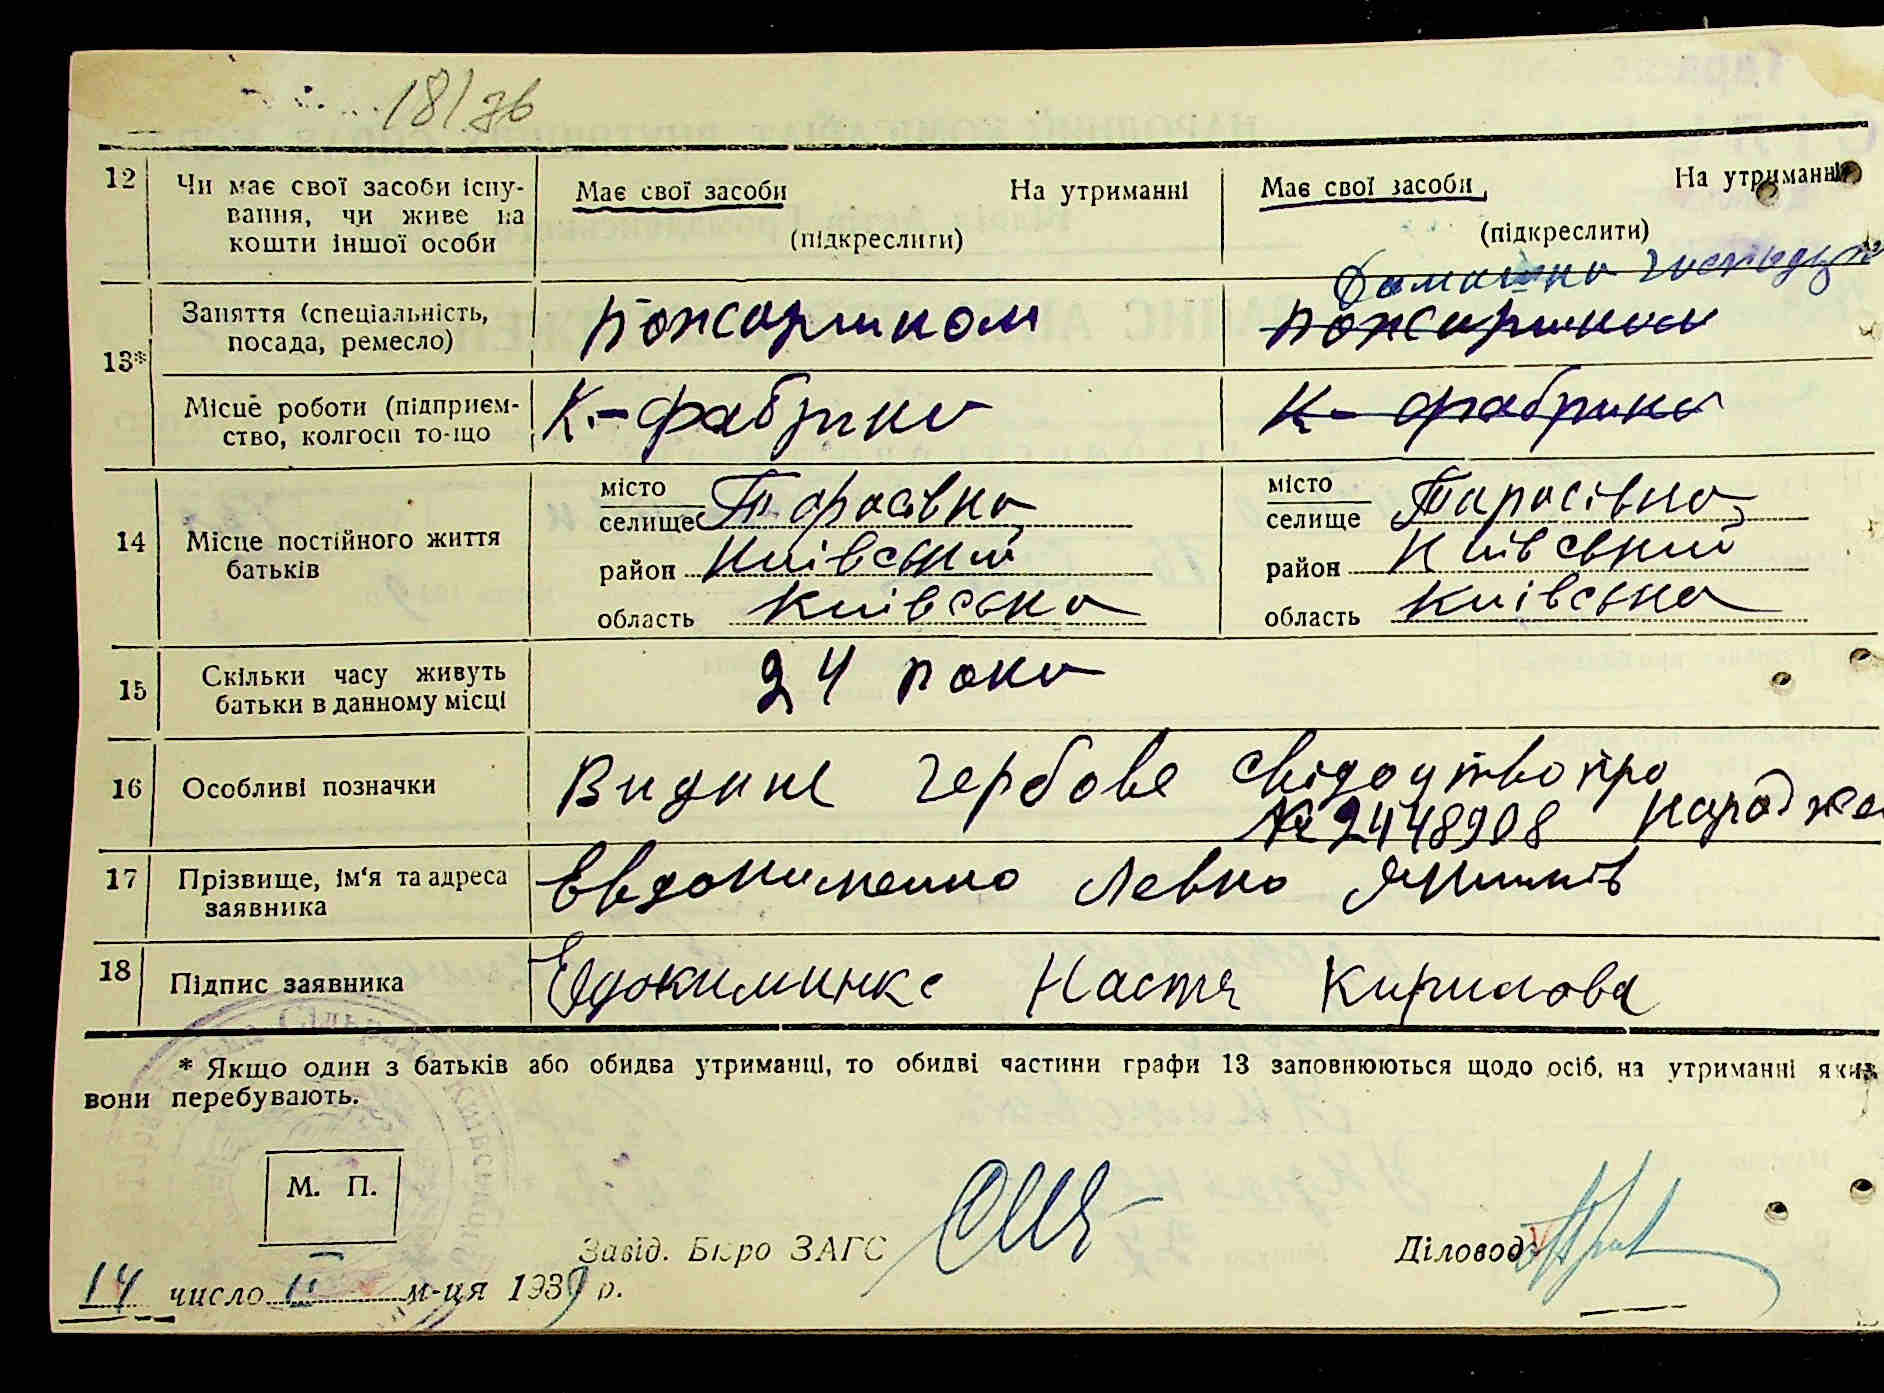 181/зв
12 Чи має свої засоби існу-
вання, чи живе на
кошти іншої особи
Має свої засоби На утриманні
(підкреслити)
Має свої засоби На утриманні
(підкреслити)
13* Заняття (спеціальність,
посада, ремесло)
пожарником
Домашна господарка
пожарником
Місце роботи (підприєм-
ство, колгосп то-що
К.-фабрика
К- фабрика
14 Місце постійного життя
батьків
місто
селище Тарасівка
район Київський
область Київська
місто
селище Тарасівка
район Київський
область Київська
15 Скільки часу живуть
батьки в данному місці
24 рока
16 Особливі позначки
Видане гербове свідоцтво про
№ 2448908 народжен
17 Прізвище, ім'я та адреса
заявника
Евдокименко Левко Якимів
18 Підпис заявника
Едокиминке Настя Кирилова
* Якщо один з батьків або обидва утриманці, то обидві частини графи 13 заповнюються щодо осіб, на утриманні яких
вони перебувають.
М. П.
Завід. Бюро ЗАГС
Діловод
14 число II м-ця 1939 р.